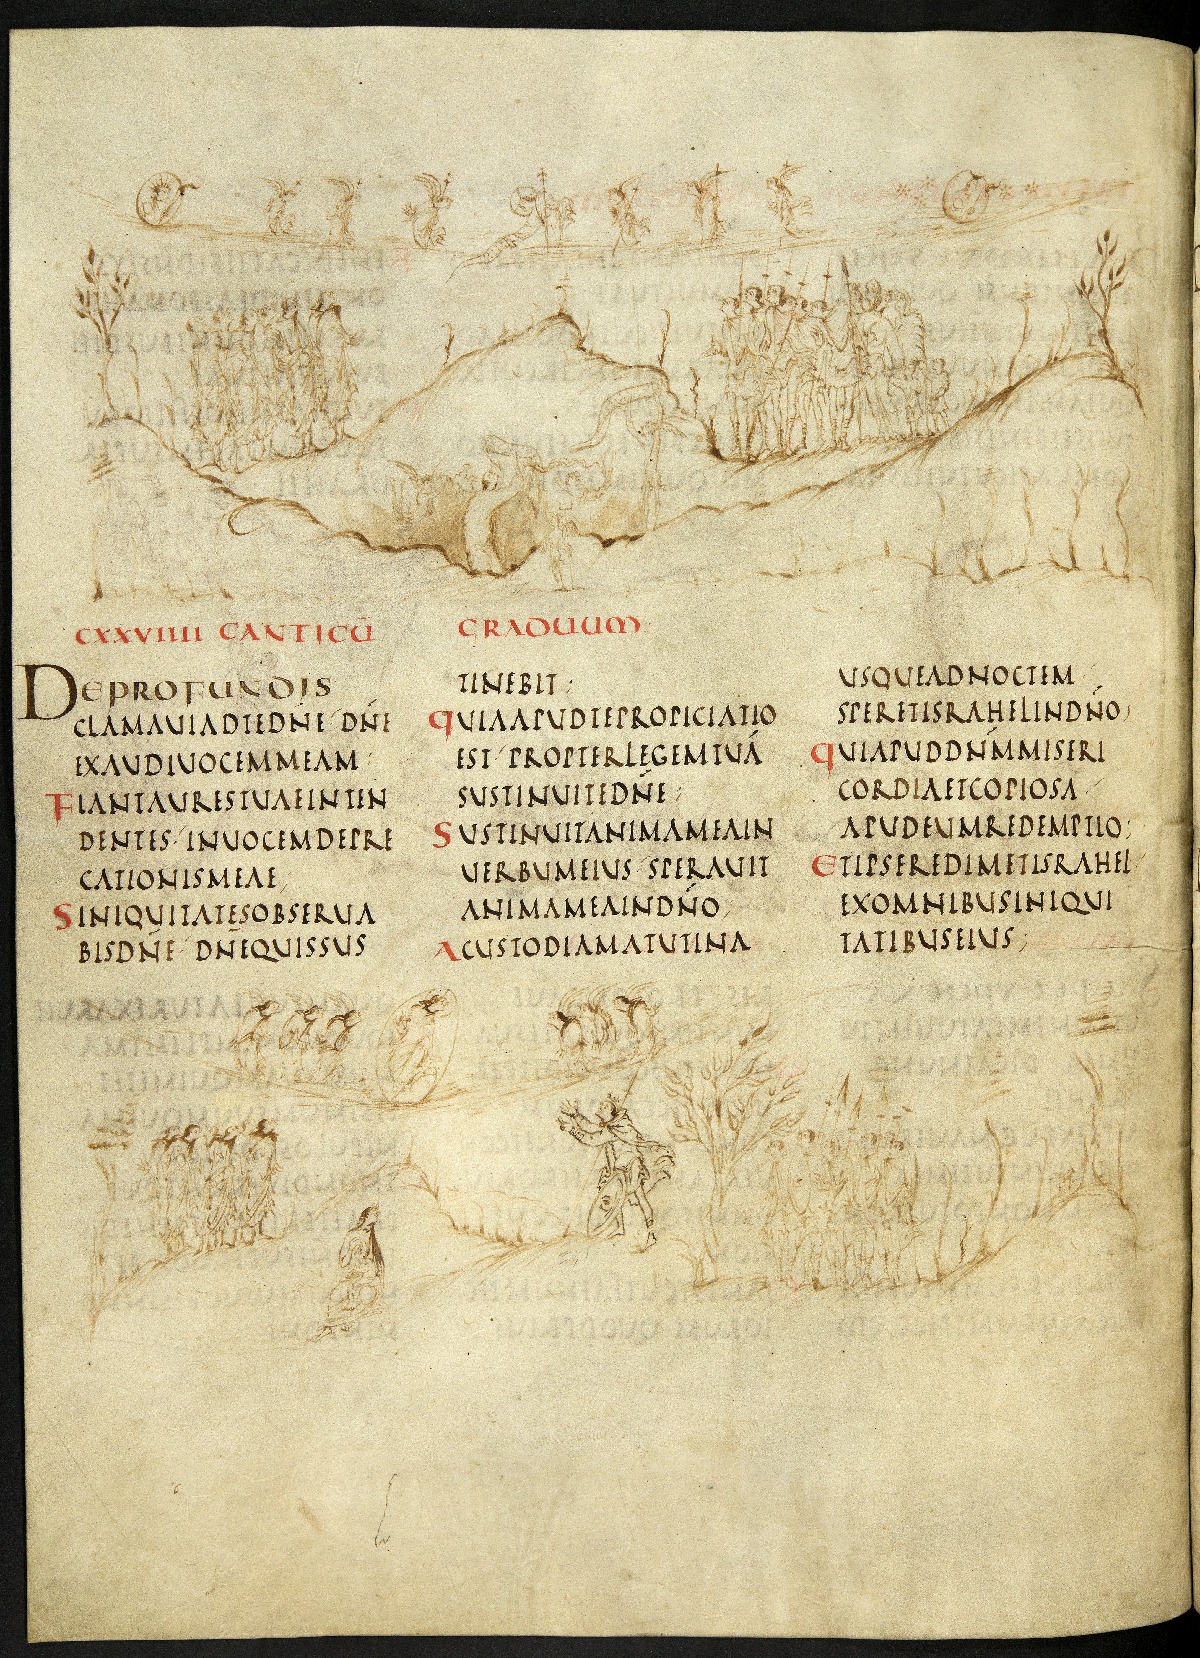 CXXVIIII CANTICŪ GRADUUM
DEPROFUNDIS
CLAMAVIADTEDÑE DÑE
EXAUDIVOCEMMEAM
FIANTAURESTUAEINTEN
DENTES INVOCEMDEPRE
CATIONISMEAE
SINIQUITATESOBSERUA
BISDÑE DÑEQUISSUS
TINEBIT
QUIAAPUDTEPROPICIATIO
EST PROPTERLEGEMTUĀ
SUSTINUITEDÑE
SUSTINUITANIMAMEAIN
UERBUMEIUS SPERAUIT
ANIMAMEAINDÑO
ACUSTODIAMATUTINA
USQUEADNOCTEM
SPERETISRAHELINDÑO
QUIAPUDDÑMMISERI
CORDIAETCOPIOSA
APUDEUMREDEMPTIO
ETIPSEREDIMETISRAHEL
EXOMNIBUSINIQUI
TATIBUSEIUS